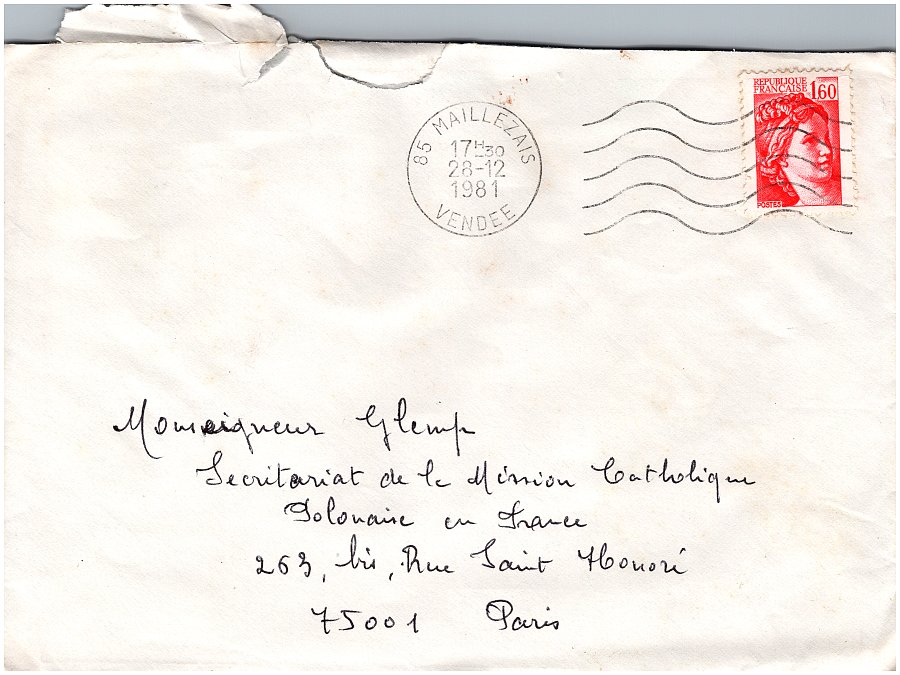 REPUBLIQUE
FRANÇAISE 1,60
POSTES
85 MAILLEZAIS
17H30
28-12
1981
VENDEE
Monseigneur Glemp
Secritariat de la Mission Catholique
Polonaise en France
263, bis, Rue Saint Honoré
75001 Paris